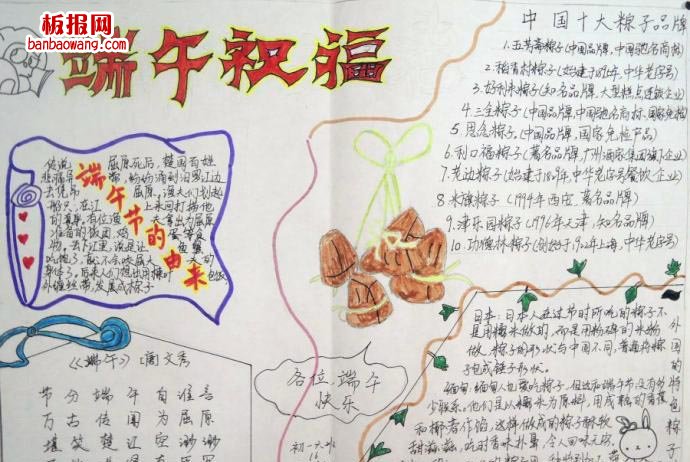 板报网
banbaowang.com
端午祝福
中国十大粽子品牌
1.五芳斋粽子(中国品牌,中国驰名商标)
2.稻香村粽子(始建于1895年,中华老字号)
3.好利来粽子(知名品牌,大型糕点连锁企业)
4.三全粽子(中国品牌,中国驰名商标,国家免检
5.思念粽子(中国品牌,国家免检产品)
6.利口福粽子(著名品牌,广州酒家集团旗下企业)
7.老边粽子(始建于1829年,中华老字号餐饮(企业)
8.米旗粽子(1994年西安,著名品牌)
9.津乐园粽子(1996年天津,知名品牌)
10.功德林粽子(创始于1922年上海,中华老字号)
端午节的由来
传说 屈原死后,楚国百姓
悲痛异常,纷纷涌到汨罗江边
去凭吊 屈原。渔夫们划起
船只,在江 上来回打捞他
的真身。有位渔夫拿出为屈原
准备的饭团、鸡蛋等食
物,丢下江里,说是让
吃饱了,就不会咬屈大夫的
身体了。后来人们想出用楝叶包饭,
外缠丝带,发展成粽子
《端午》[唐]文秀
节分端午自谁言
万古传闻为屈原
堪笑楚江空渺渺
各位,端午
快乐
初一六班
外国的特色粽子
日本:日本人在过节时所吃的粽子不
是用糯米做的,而是用粉碎的米粉
做。粽子的形状与中国不同,普通将粽
子包成锤子形状。
缅甸:缅甸人也爱吃粽子,但这和端午节没有多
少联系。他们是以糯米为原料,用成熟的香蕉
和椰蓉作馅,这样做成的粽子酥软
甜滋滋,吃时香味扑鼻,令人回味无穷。